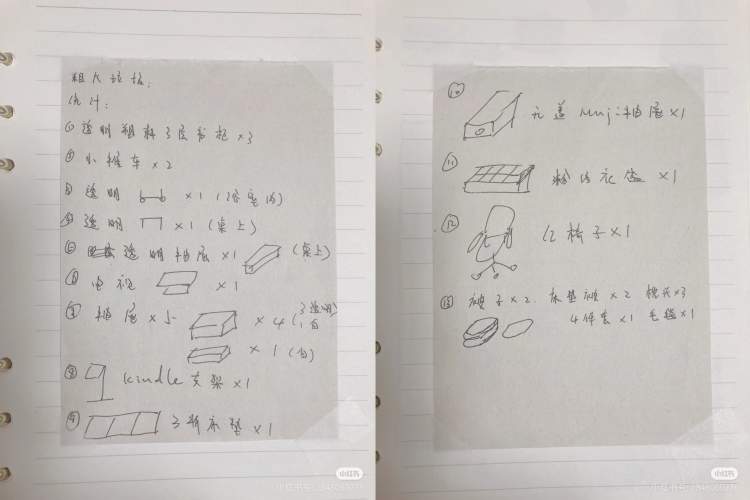 估计:
① 透明塑料3层书柜 ×3
② 小推车 ×2
③ 透明 ×1
④ 透明 ×1 (桌上)
⑤ 透明抽屉 ×1 (桌上)
⑥ 电视 ×1
⑦ 抽屉 ×5 ×4 (3透明 1白
×1 (白)
⑧ kindle支架 ×1
⑨ 3折床垫 ×1
⑩ 无盖 muji抽屉 ×1
⑪ 粉的衣盒 ×1
⑫ 红椅子 ×1
⑬ 被子 ×2. 床垫被 ×2 枕头 ×3
4件套 ×1 毛毯 ×1
小红书
小红书